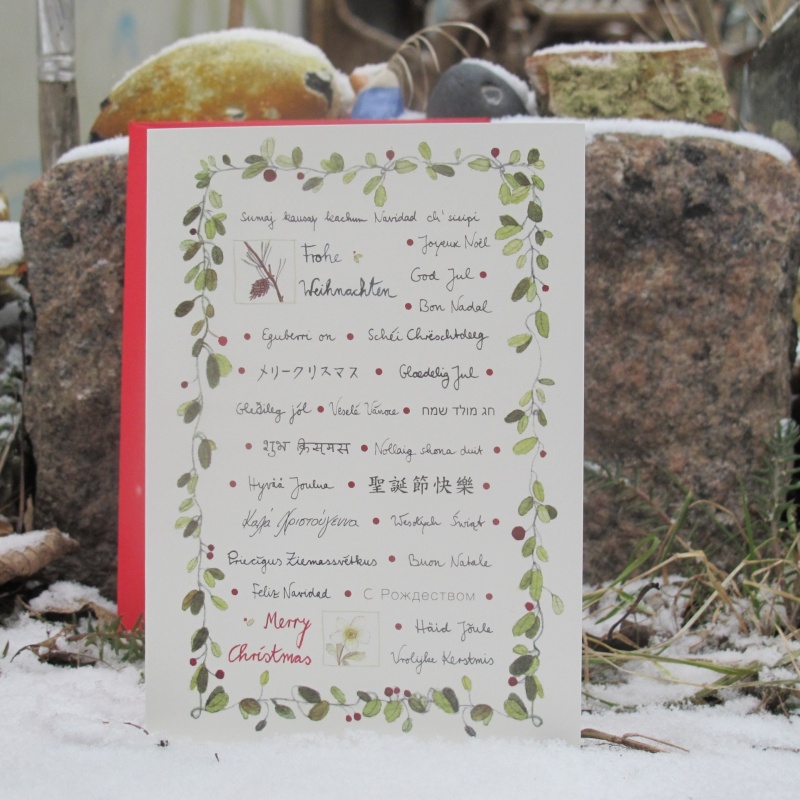 Sumaj kausay kachun Navidad ch'sisipi
Frohe
Weihnachten
• Joyeux Noël
God Jul •
• Bon Nadal
• Eguberri on • Schéi Chrëschtdeeg
• メリークリスマス • Glædelig Jul •
Gleðileg jól • Veselé Vánoce • חג מולד שמח
• शुभ क्रिसमस • Nollaig shona duit •
• Hyvää Joulua • 聖誕節快樂 •
Καλά Χριστούγεννα • Wesołych Świąt •
Priecīgus Ziemassvētkus • Buon Natale
• Feliz Navidad • С Рождеством •
Merry
Christmas
• Häid Jõule
Vrolijke Kerstmis